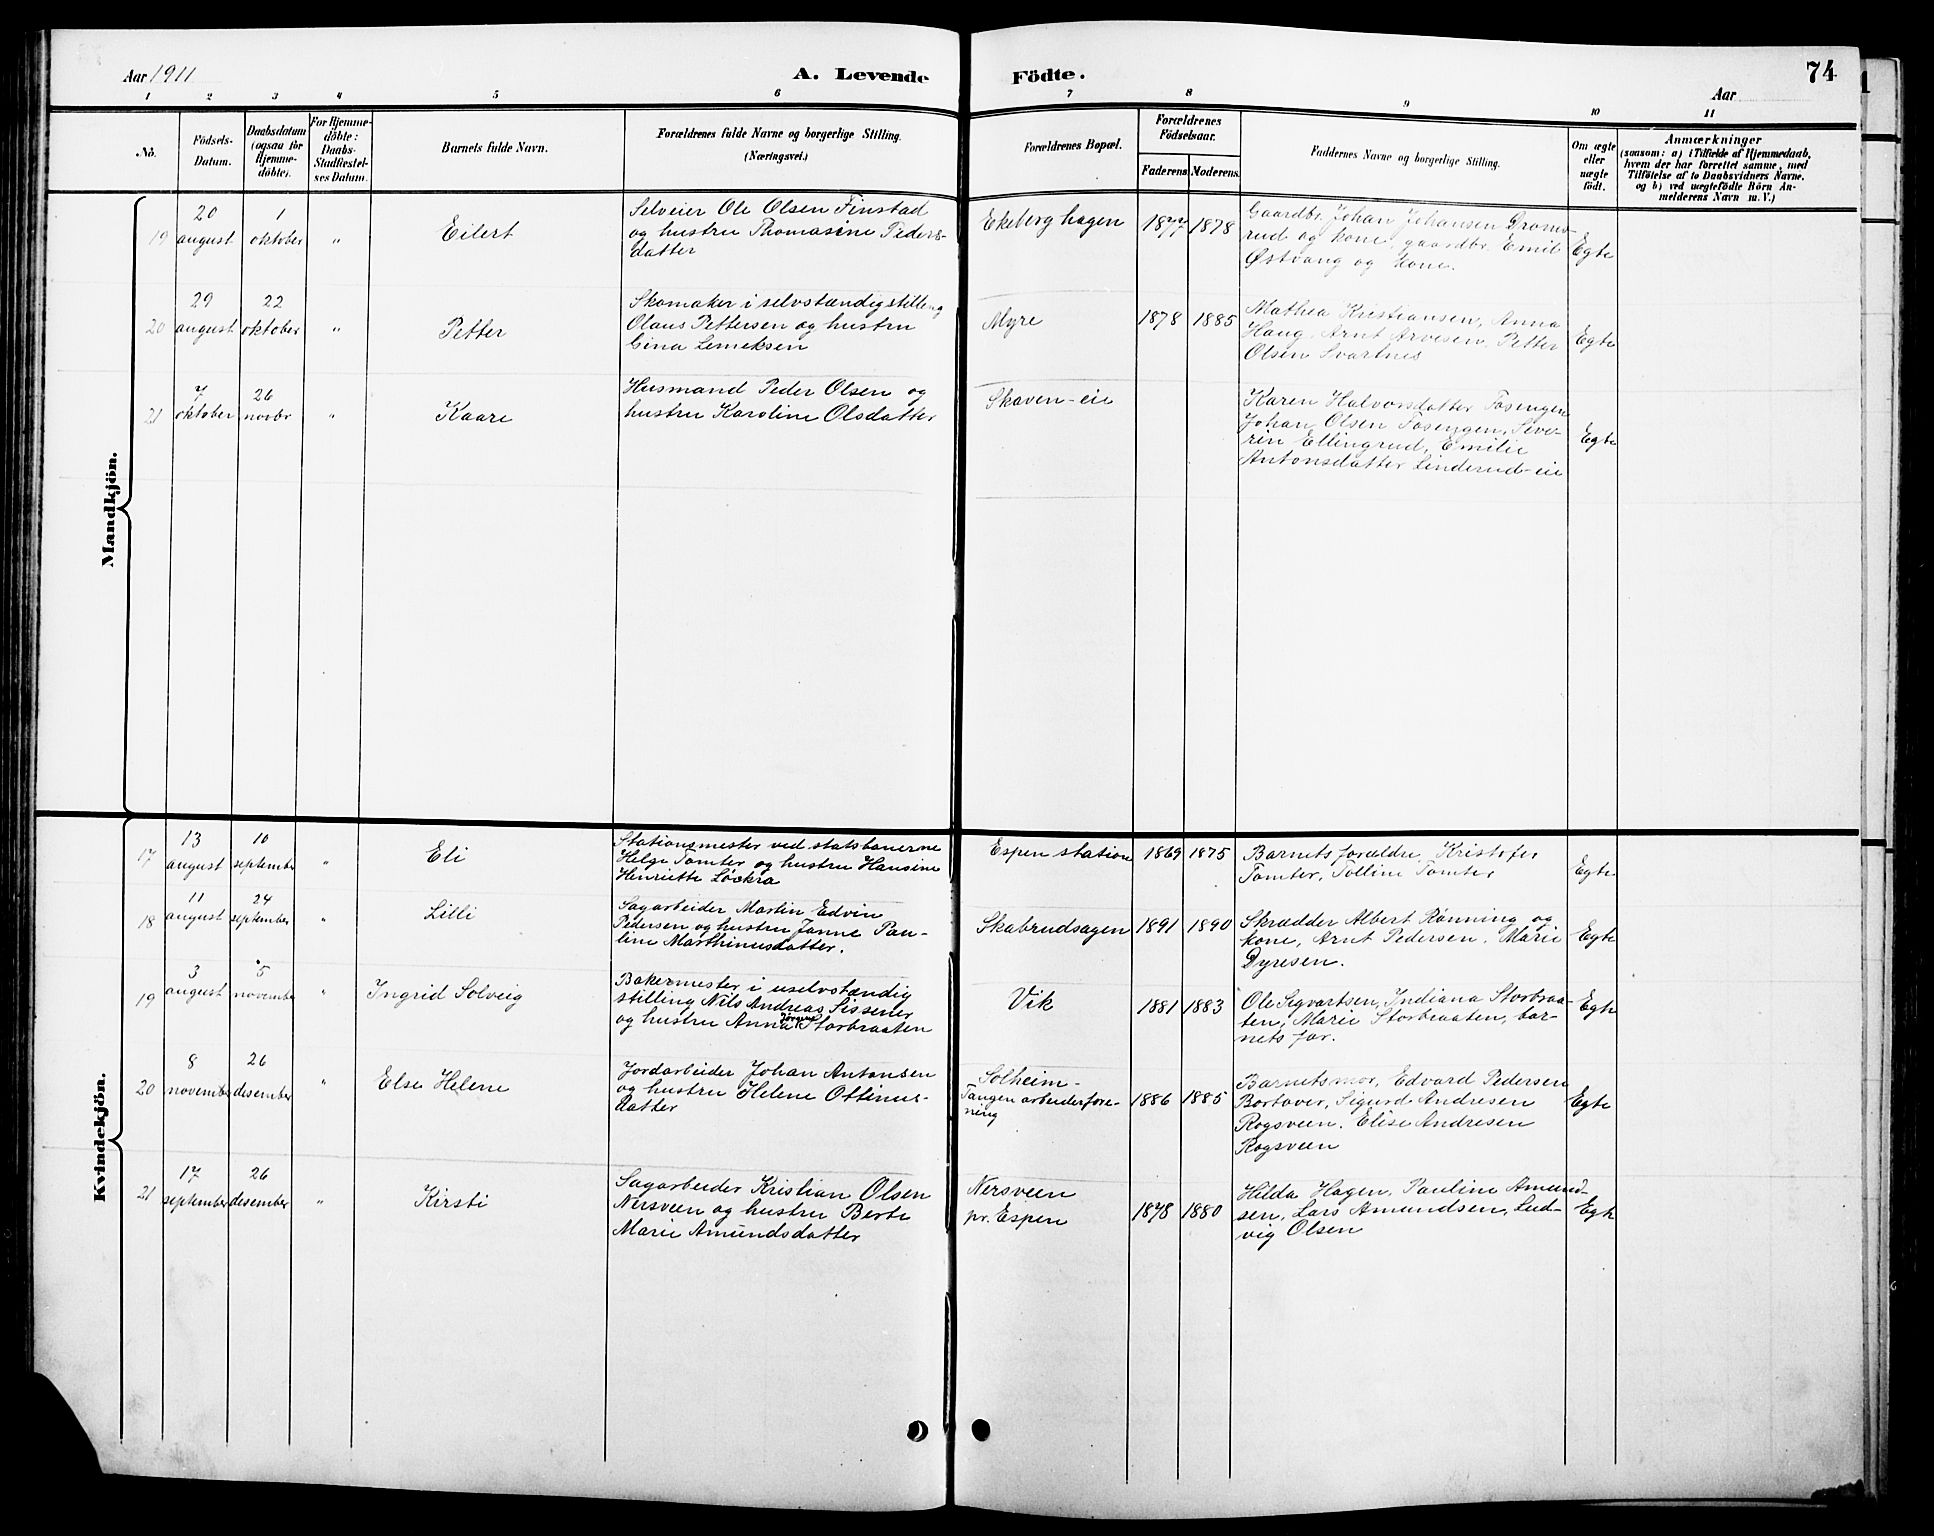 Aar 1911
A. Levende Födte.
74
Aar
1 2 3 4 5 6 7 8 9 10 11
No.
Födsels-
Datum.
Daabsdatum
(ogsaa for
Hjemme-
döbte).
For Hjemme-
döbte:
Daabs-
Stadfæstel-
ses Datum.
Barnets fulde Navn.
Forældrenes fulde Navne og borgerlige Stilling.
(Næringsvei.)
Forældrenes Bopæl.
Forældrenes
Födselsaar.
Faderens. Moderens.
Faddernes Navne og borgerlige Stilling.
Om ægte
eller
uægte
födt.
Anmærkninger
(saasom: a) i Tilfælde af Hjemmedaab,
hvem der har forrettet samme, med
Tilföielse af to Daabsvidners Navne.
og b) ved uægtefödte Börn An-
melderens Navn m. V.)
Mandkjön.
19
20
august
1
oktober
"
Eilert
Selveier Ole Olsen Finstad
og hustru Thomasine Peders-
datter
Ekeberg hagen
1877
1878
Gaardbr. Johan Johansen
rud og kone, gaardbr. Emil
Østvang og kone.
Egte
20
29
august
22
oktober
"
Petter
Skomaker i selvstændig stilling
Olaus Pettersen og hustru
Gina Lemeksen
Myre
1878
1885
Mathea Kristiansen, Anna
Haug, Arnt Arvesen, Petter
Olsen Svartnes
Egte
21
7
oktober
26
novbr
"
Kaare
Husmand Peder Olsen og
hustru Karoline Olsdatter
Skaven-eie
Karen Halvorsdatter Fosengen
Johan Olsen Fosengen, Seve-
rin Ellingrud, Emilie
Antonsdatter Linderud-eie
Egte
Kvindekjön.
17
13
august
10
september
"
Eli
Stationsmester ved statsbanerne
Helge Tomter og hustru Hansine
Henriette Løckra
Espen station
1869
1875
Barnets forældre, Kristofer
Tomter, Tolline Tomter
Egte
18
11
august
24
september
"
Lilli
Sagarbeider Martin Edvin
Pedersen og hustru Janne Pau-
line Marthinusdatter.
Skabrudsagen
1891
1890
Skrædder Albert Rønning og
kone, Arnt Pedersen, Marie
Dyresen.
Egte
19
3
august
5
november
"
Ingrid Solveig
Bakermester i uselvstændig
stilling Nils Andreas Sissener
og hustru Anna Jørgine Storbraaten
Vik
1881
1883
Ole Sigvartsen, Indiana Storbraa-
ten, Marie Storbraaten, bar-
nets far.
Egte
20
8
november
26
desember
"
Else Helene
Jordarbeider Johan Antonsen
og hustru Helene Ottinus-
datter
Solheim-
Tangen arbeiderfore-
ning
1886
1885
Barnets mor, Edvard Pedersen
Bortover, Sigurd Andresen
Rogsveen, Elise Andresen
Rogsveen
Egte
21
17
september
26
desember
"
Kirsti
Sagarbeider Kristian Olsen
Nersveen og hustru Berte
Marie Amundsdatter
Nersveen
pr. Espen
1878
1880
Hilda Hagen, Pauline Amund-
sen, Lars Amundsen, Lud-
vig Olsen
Egte